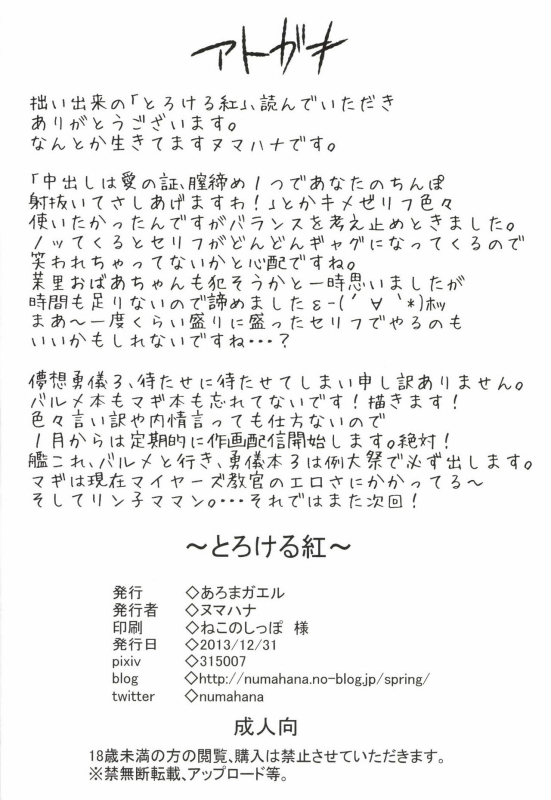 アトガキ
拙い出来の「とろける紅」、読んでいただき
ありがとうございます。
なんとか生きてますヌマハナです。
「中出しは愛の証、膣締め1つであなたのちんぽ
射抜いてさしあげますわ!」とかキメゼリフ色々
使いたかったんですがバランスを考え止めときました。
ノッてくるとセリフがどんどんギャグになってくるので
笑われちゃってないかと心配ですね。
菜里おばあちゃんも犯そうかと一時思いましたが
時間も足りないので諦めましたε-(´∀`*)ホッ
まあ~一度くらい盛りに盛ったセリフでやるのも
いいかもしれないですね・・・?
儚想勇儀3、待たせに待たせてしまい申し訳ありません。
バルメ本もマギ本も忘れてないです!描きます!
色々言い訳や内情言っても仕方ないので
1月からは定期的に作画配信開始します。絶対!
艦これ、バルメと行き、勇儀本3は例大祭で必ず出します。
マギは現在マイヤーズ教官のエロさにかかってる~
そしてリン子ママン。・・・それではまた次回!
~とろける紅~
発行 ◇あろまガエル
発行者 ◇ヌマハナ
印刷 ◇ねこのしっぽ 様
発行日 ◇2013/12/31
pixiv ◇315007
blog ◇http://numahana.no-blog.jp/spring/
twitter ◇numahana
成人向
18歳未満の方の閲覧、購入は禁止させていただきます。
※禁無断転載、アップロード等。